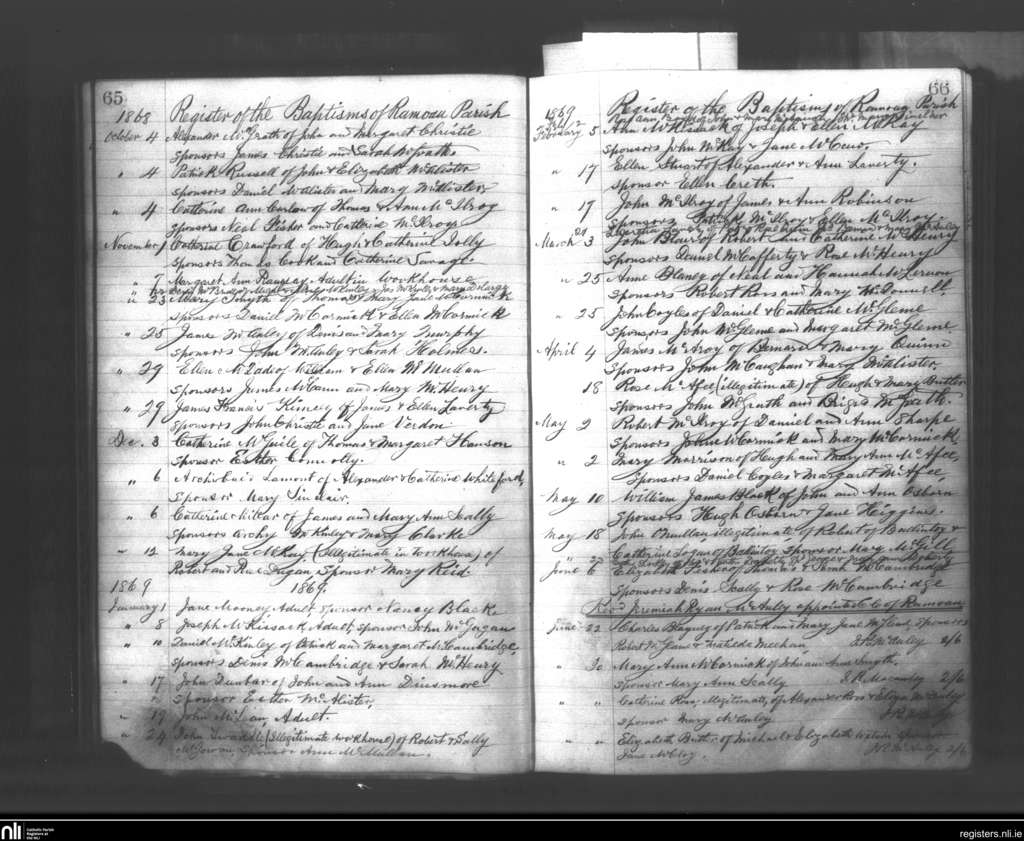 65
1868 Register of the Baptisms of Ramoan Parish
October 4 Alexander McGrath of John and Margaret Christie
Sponsors James Christie and Sarah McGrath
" 4 Patrick Russell of John & Elizabeth McAlister
Sponsors Daniel McAlister and Mary McAlister
" 4 Catherine Ann Curlow of Thomas & Ann McIlroy
Sponsors Neal Fisher and Catherine McIlroy
November 1 Catherine Crawford of Hugh & Catherine Jolly
Sponsors Thomas Cook and Catherine Savage
" Margaret Ann Adult in Workhouse
" 23 Mary Smyth of Thomas & Mary Jane McCormick
Sponsors Daniel McCormick & Ellen McCormick
" 25 James McAuley of Denis and Mary Murphy
Sponsors John McAuley & Sarah Holmes.
" 29 Ellen McDade of William & Ellen McMullan
Sponsors James McCann and Mary McHenry
" 29 James Francis Kinney of James & Ellen Laverty
Sponsors John Christie and Jane Verdon
Dec. 3 Catherine McGuile of Thomas & Margaret Hanson
Sponsor Esther Connolly.
" 6 Archibald Lamont of Alexander & Catherine Whiteford,
Sponsor Mary Sinclair.
" 6 Catherine of James and Mary Ann Scally
Sponsors Archy McKinley & Mary Clarke
" 12 Mary Jane McKay (Illegitimate in Workhouse) of
Robert and Rose Dugan, Sponsor Mary Reid
1869 1869.
January 1 Jane Mooney Adult, Sponsor Nancy Black
" 8 Joseph McKissack Adult, Sponsor John McGugan
" 10 Daniel McKinley of Patrick and Margaret McCambridge,
Sponsors Denis McCambridge & Sarah McHenry
" 17 John Dunbar of John and Ann Dinsmore
" Sponsor Esther McAlister,
" 19 John McLean, Adult.
" 24 John (Illegitimate workhouse) of Robert & Sally
McGowan, Sponsor Ann McMullan.
66
1869 Register of the Baptisms of Ramoan Parish
February 5 Ann McKissack of Joseph & Ellen McKay
Sponsors John McKay & Jane McCew.
" 17 Ellen Stuart of Alexander & Ann Laverty.
Sponsor Ellen Creth.
" 17 John McIlroy of James & Ann Robinson
Sponsors Patrick McIlroy & Ellen McIlroy.
March 3 John Blair of Robert and Catherine McHenry
Sponsors Daniel McCafferty & Rose McHenry
" 25 Anne Blaney of Neal and Hannah McLernon
Sponsors Robert Ross and Mary McDonnell.
" 25 John Coyles of Daniel & Catherine McGleme
Sponsors John McGleme and Margaret McGleme
April 4 James McAroy of Bernard & Mary Quinn
Sponsors John McCaughan & Mary McAlister
18 Rose McAfee (illegitimate) of Hugh & Mary Butler
Sponsors John McGrath and Briget McGrath.
May 2 Robert McIlroy of Daniel and Ann Sharpe
Sponsors John McCormick and Mary McCormick
" 2 Mary Morrison of Hugh and Mary Ann McAfee,
Sponsors Daniel Coyles & Margaret McAfee,
May 10 William James Black of John and Ann Osborn
Sponsors Hugh Osborn & Jane Higgins.
May 18 John OMullan illegitimate of Robert of Ballintoy &
Catherine Logan of Ballintoy Sponsor Mary McGill
June 6 Elizabeth of Thomas & Sarah McCambridge
Sponsors Denis Scally & Rose McCambridge
Revd Jeremiah Ryan McAuley appointed C.C. of Ramoan
June 22 Charles Blayney of Patrick and Mary Jane McLeod, Sponsors
Robert McCann & Matilda Meehan J.R. McAuley 2/6
" 30 Mary Ann McCormick of John and Anne Smyth.
Sponsor Mary Ann Scally J.R. Macauley 2/6
" " Catherine Ross, Illegitimate, of Alexander Ross & Eliza McAuley
Sponsor Mary McAuley J.R. McAuley
" " Elizabeth Butler of Michael & Elizabeth Sponsor
Jane McElroy. J.R. McAuley 2/6
nli Catholic Parish
Registers at
the NLI
registers.nli.ie